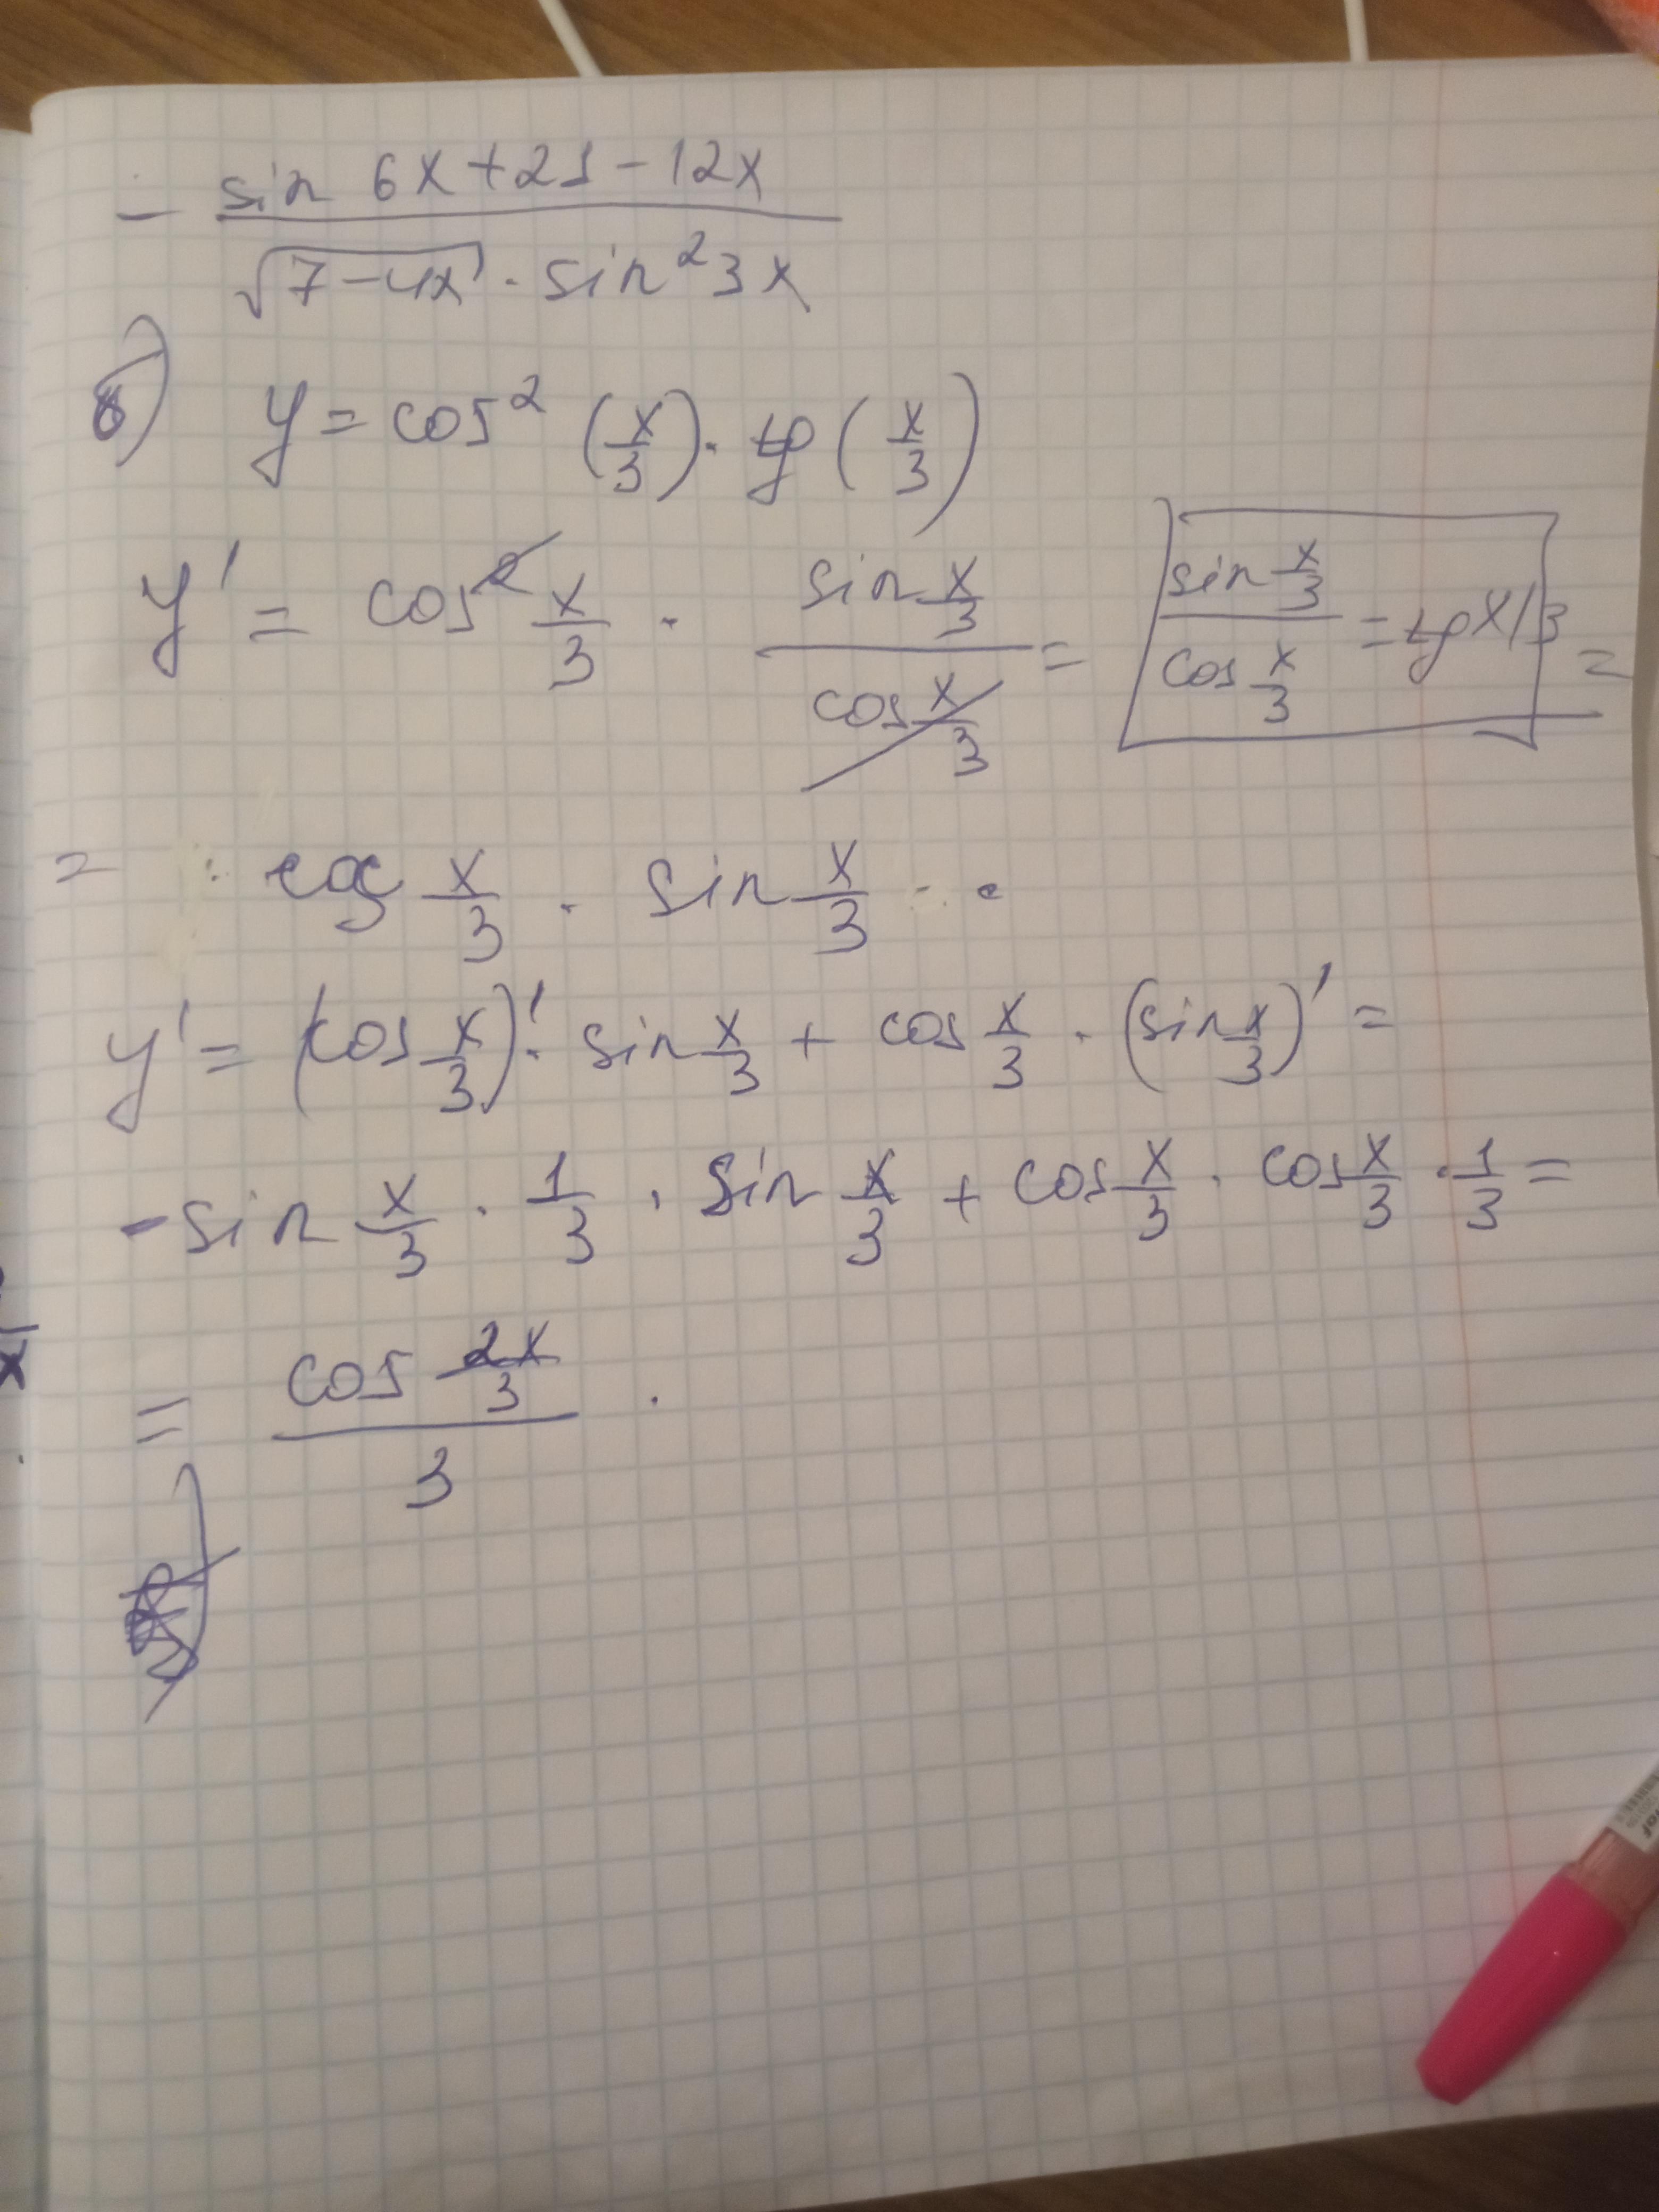 - (sin 6x + 21 - 12x) / (√(7-4x) · sin² 3x)
в) y = cos² (x/3) · tg (x/3)
y' = cos² x/3 · (sin x/3) / (cos x/3) = [(sin x/3) / (cos x/3) = tg x/3] =
= cos x/3 · sin x/3 ·
y' = (cos x/3)' · sin x/3 + cos x/3 · (sin x/3)' =
- sin x/3 · 1/3 · sin x/3 + cos x/3 · cos x/3 · 1/3 =
= (cos 2x/3) / 3 .